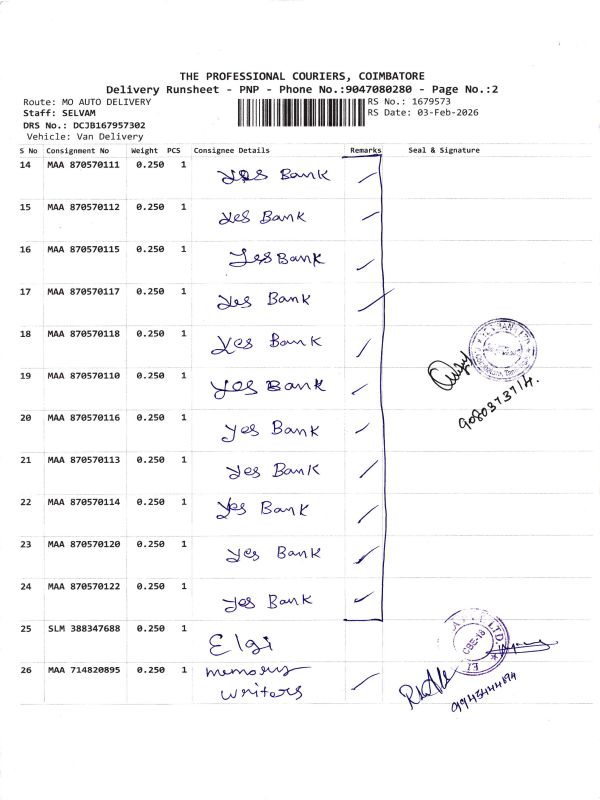 THE PROFESSIONAL COURIERS, COIMBATORE
Delivery Runsheet - PNP - Phone No.:9047080280 - Page No.:2
Route: MO AUTO DELIVERY
RS No.: 1679573
Staff: SELVAM
RS Date: 03-Feb-2026
DRS No.: DCJB167957302
Vehicle: Van Delivery
S No Consignment No Weight PCS Consignee Details Remarks Seal & Signature
14 MAA 870570111 0.250 1 Yes Bank
15 MAA 870570112 0.250 1 Yes Bank
16 MAA 870570115 0.250 1 Yes Bank
17 MAA 870570117 0.250 1 Yes Bank
18 MAA 870570118 0.250 1 Yes Bank
19 MAA 870570110 0.250 1 Yes Bank
9080373714.
20 MAA 870570116 0.250 1 yes Bank
21 MAA 870570113 0.250 1 yes Bank
22 MAA 870570114 0.250 1 Yes Bank
23 MAA 870570120 0.250 1 yes Bank
24 MAA 870570122 0.250 1 yes Bank
25 SLM 388347688 0.250 1 Elgi
LTD.
CBE-18
26 MAA 714820895 0.250 1 memory
writers